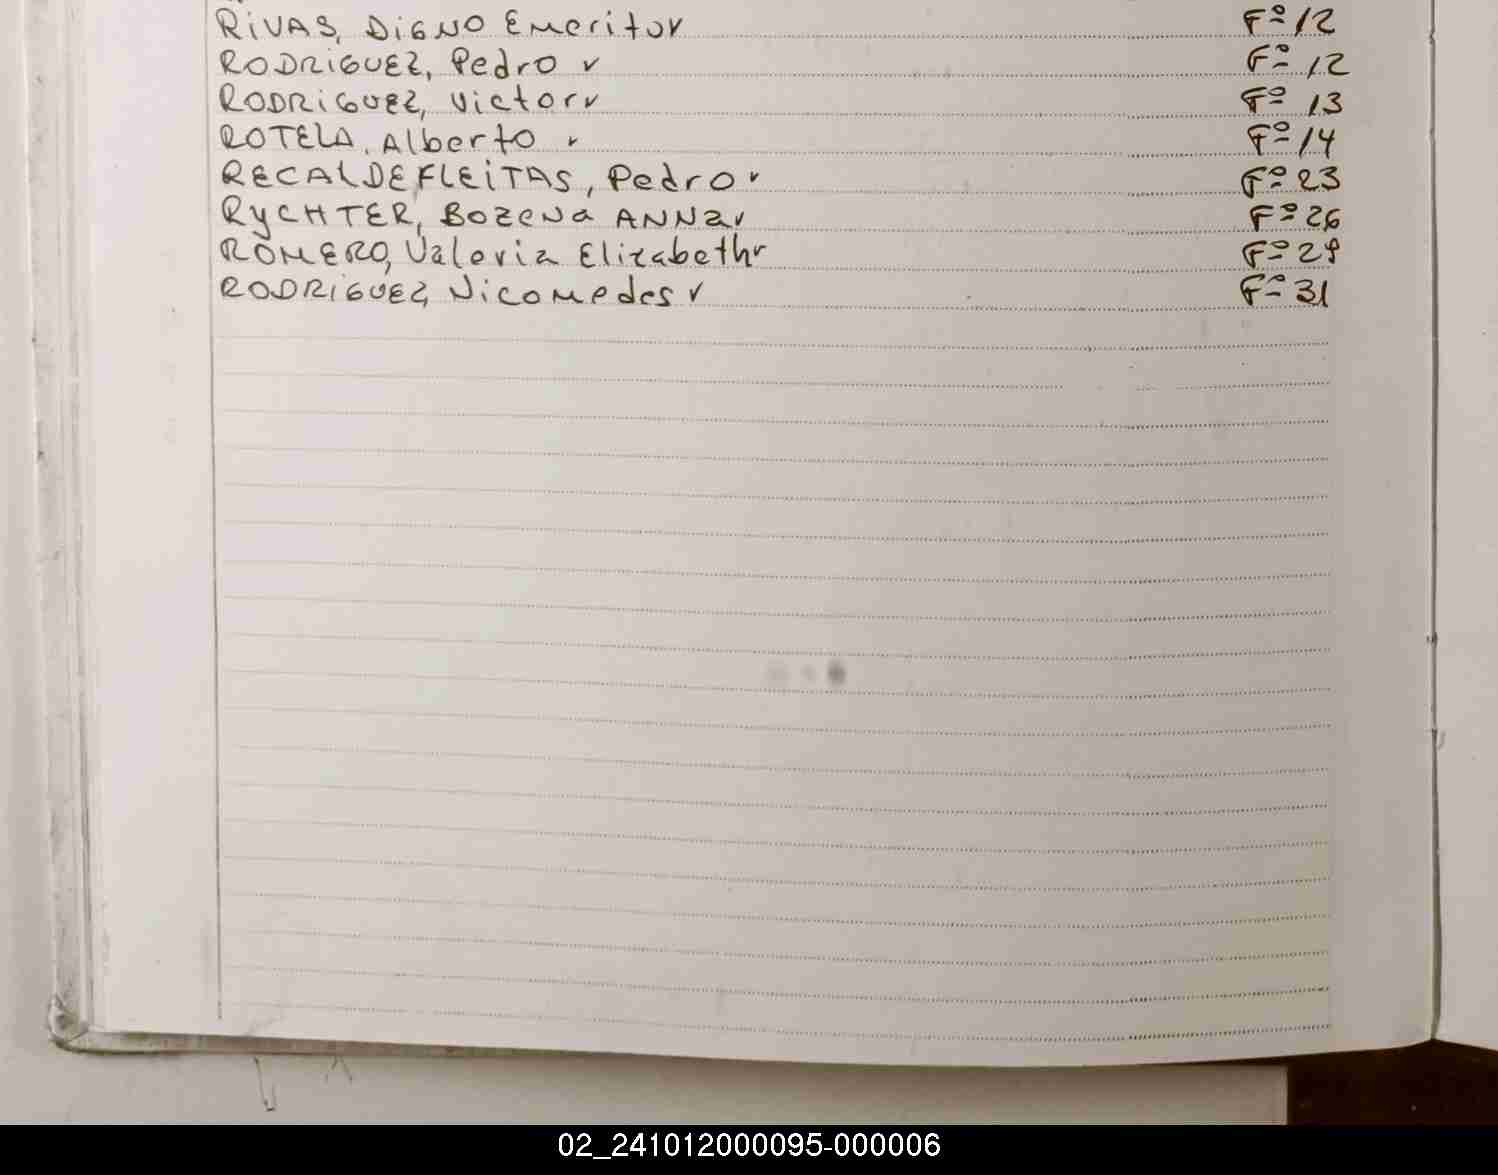 RIVAS, DIGNO Emerito ✓ Fº 12
RODRIGUEZ, Pedro ✓ Fº 12
RODRIGUEZ, Victor ✓ Fº 13
ROTELA, Alberto ✓ Fº 14
RECALDE FLEITAS, Pedro ✓ Fº 23
RYCHTER, Bozena ANNA ✓ Fº 26
ROMERO, Valeria Elizabeth ✓ Fº 29
RODRIGUEZ, Nicomedes ✓ Fº 31
02_241012000095-000006